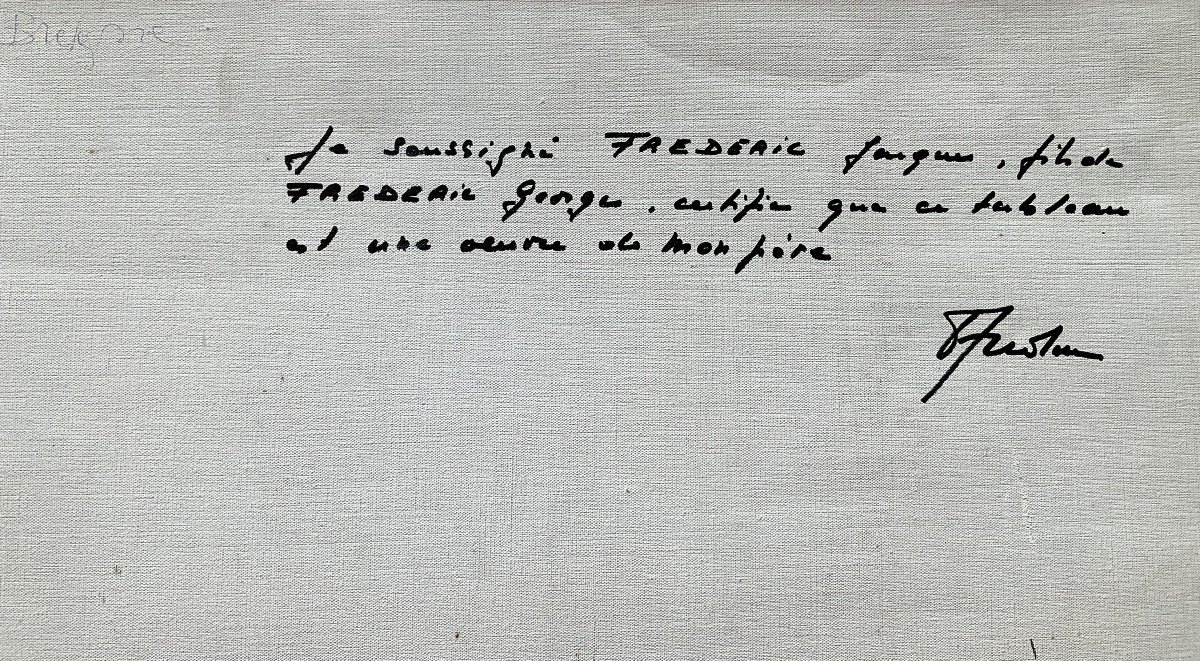 Bretagne
Je soussigné FREDERIC Jacques, fils de
FREDERIC Georges, certifie que ce tableau
est une oeuvre de mon père